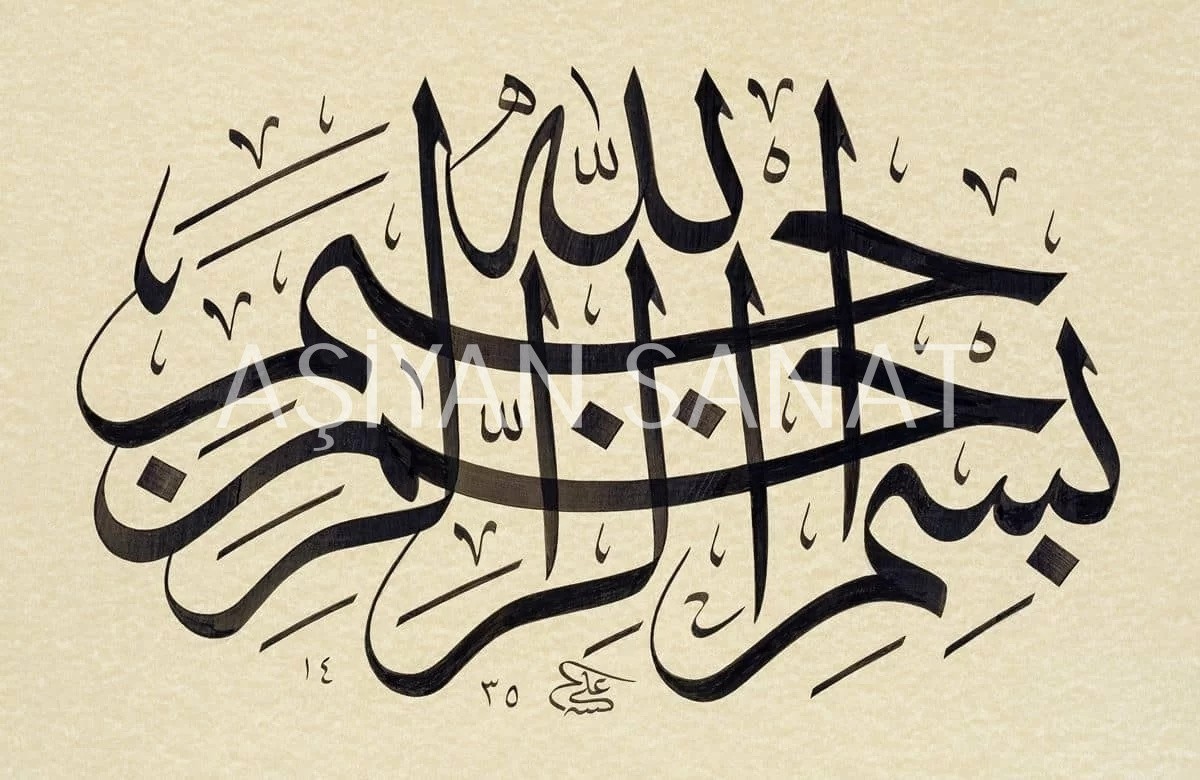 بِسْمِ اللهِ الرَّحْمٰنِ الرَّحِيمِ
AŞİYAN SANAT
١٤
٣٥
علي